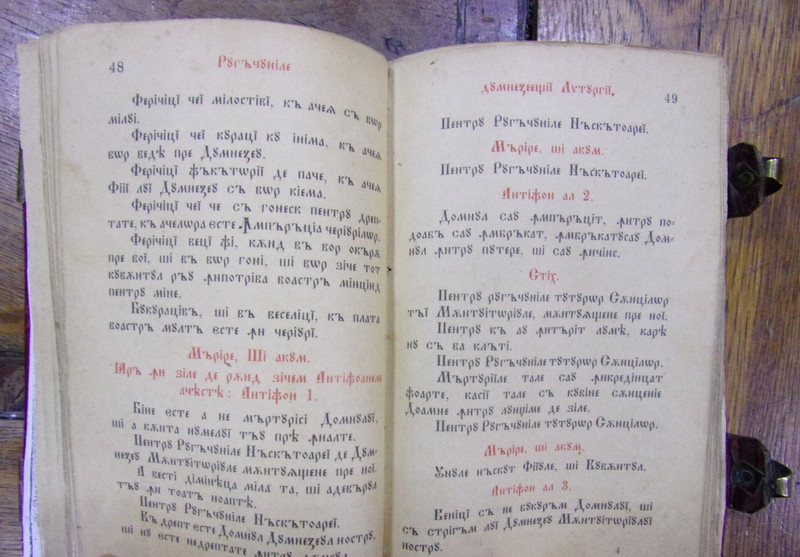 48
Рꙋгъчꙋніле
Ферічіці чеї мілостіві, къ ачеѧ съ вѡр
мілꙋі.
Ферічіці чеї кꙋраці кꙋініма, къ ачеѧ
вѡр ведѣ пре Дꙋмнеꙁеꙋ.
Ферічіці фъкътѡрії де паче, къ ачеѧ
Фіїі лꙋї Дꙋмнеꙁеꙋ съ вѡр кіема.
Ферічіці чеї че с гонеск пентрꙋ дреп-
тате, къ ачелѡра есте Ꙟмпъръціа черюрілѡр.
Ферічіці веці фі, кѫнд въ вор окърѫ
пре вої, ші въ вѡр гоні, ші вѡр зіче тот
кꙋвѫнтꙋл ръꙋ ꙟпотріба воастръ мінцінд
пентрꙋ міне.
Бꙋкꙋраціві, ші въ веселіці, къ плата
воастръ мꙋлт есте ꙟн черюрї.
Мъріре, Ші акꙋм.
Іаръ ꙟн зіле де рѫнд зічем Антіфоанеле
ачѣстѣ: Антіфон 1.
Біне есте а не мъртꙋрісі Домнꙋлꙋї,
ші а кѫнта нꙋмелꙋї тъꙋ прѣ ꙟналте.
Пентрꙋ Рꙋгъчꙋніле Нъскътоареї де Дꙋм-
неꙁеꙋ Мѫнтꙋітѡрюле мѫнтꙋѧще не пре ної.
А весті дімінѣца міла та, ші адевърꙋл
тъꙋ ꙟн тоатъ ноаптѣ.
Пентрꙋ Рꙋгъчꙋніле Нъскътоареї.
Къ дрепт есте Домнꙋл Дꙋмнеꙁеꙋл нострꙋ,
ші нꙋ есте недрептате ꙟнтрꙋ
дꙋмнеꙁеещії Лѵтꙋргії.
49
Пентрꙋ Рꙋгъчꙋніле Нъскътоареї.
Мъріре, ші акꙋм.
Пентрꙋ Рꙋгъчꙋніле Нъскътоареї.
Антіфон ал 2.
Домнꙋл саꙋ ꙟмпъръціт, ꙟнтрꙋ по-
доавъ саꙋ ꙟмбръкат, ꙟмбръкатꙋсаꙋ Дом-
нꙋл ꙟнтрꙋ пꙋтере, ші саꙋ ꙟнчінс.
Стіх.
Пентрꙋ рꙋгъчꙋніле тꙋтꙋрѡр Сѫнцілѡр
тъї Мѫнтꙋітѡрюле, мѫнтꙋѧщене пре ної.
Пентрꙋ къ аꙋ ꙟнтъріт лꙋмѣ, каре
нꙋ съ ва клъті.
Пентрꙋ Рꙋгъчꙋніле тꙋтꙋрѡр Сѫнцілѡр.
Мъртꙋріїле тале саꙋ ꙟнкредінцат
фоарте, касії тале съ кꙋвіне сѫнценіе
Доамне ꙟнтрꙋ лꙋнціме де зіле.
Пентрꙋ Рꙋгъчꙋніле тꙋтꙋрѡр Сѫнцілѡр.
Мъріре, ші акꙋм.
Унꙋле нъскꙋт Фіюле, ші Кꙋвѫнтꙋл.
Антіфон ал 3.
Веніці съ не бꙋкꙋръм Домнꙋлꙋї, ші
съ стрігъм лꙋї Дꙋмнеꙁеꙋ Мѫнтꙋітѡрюлꙋї
нострꙋ.
4